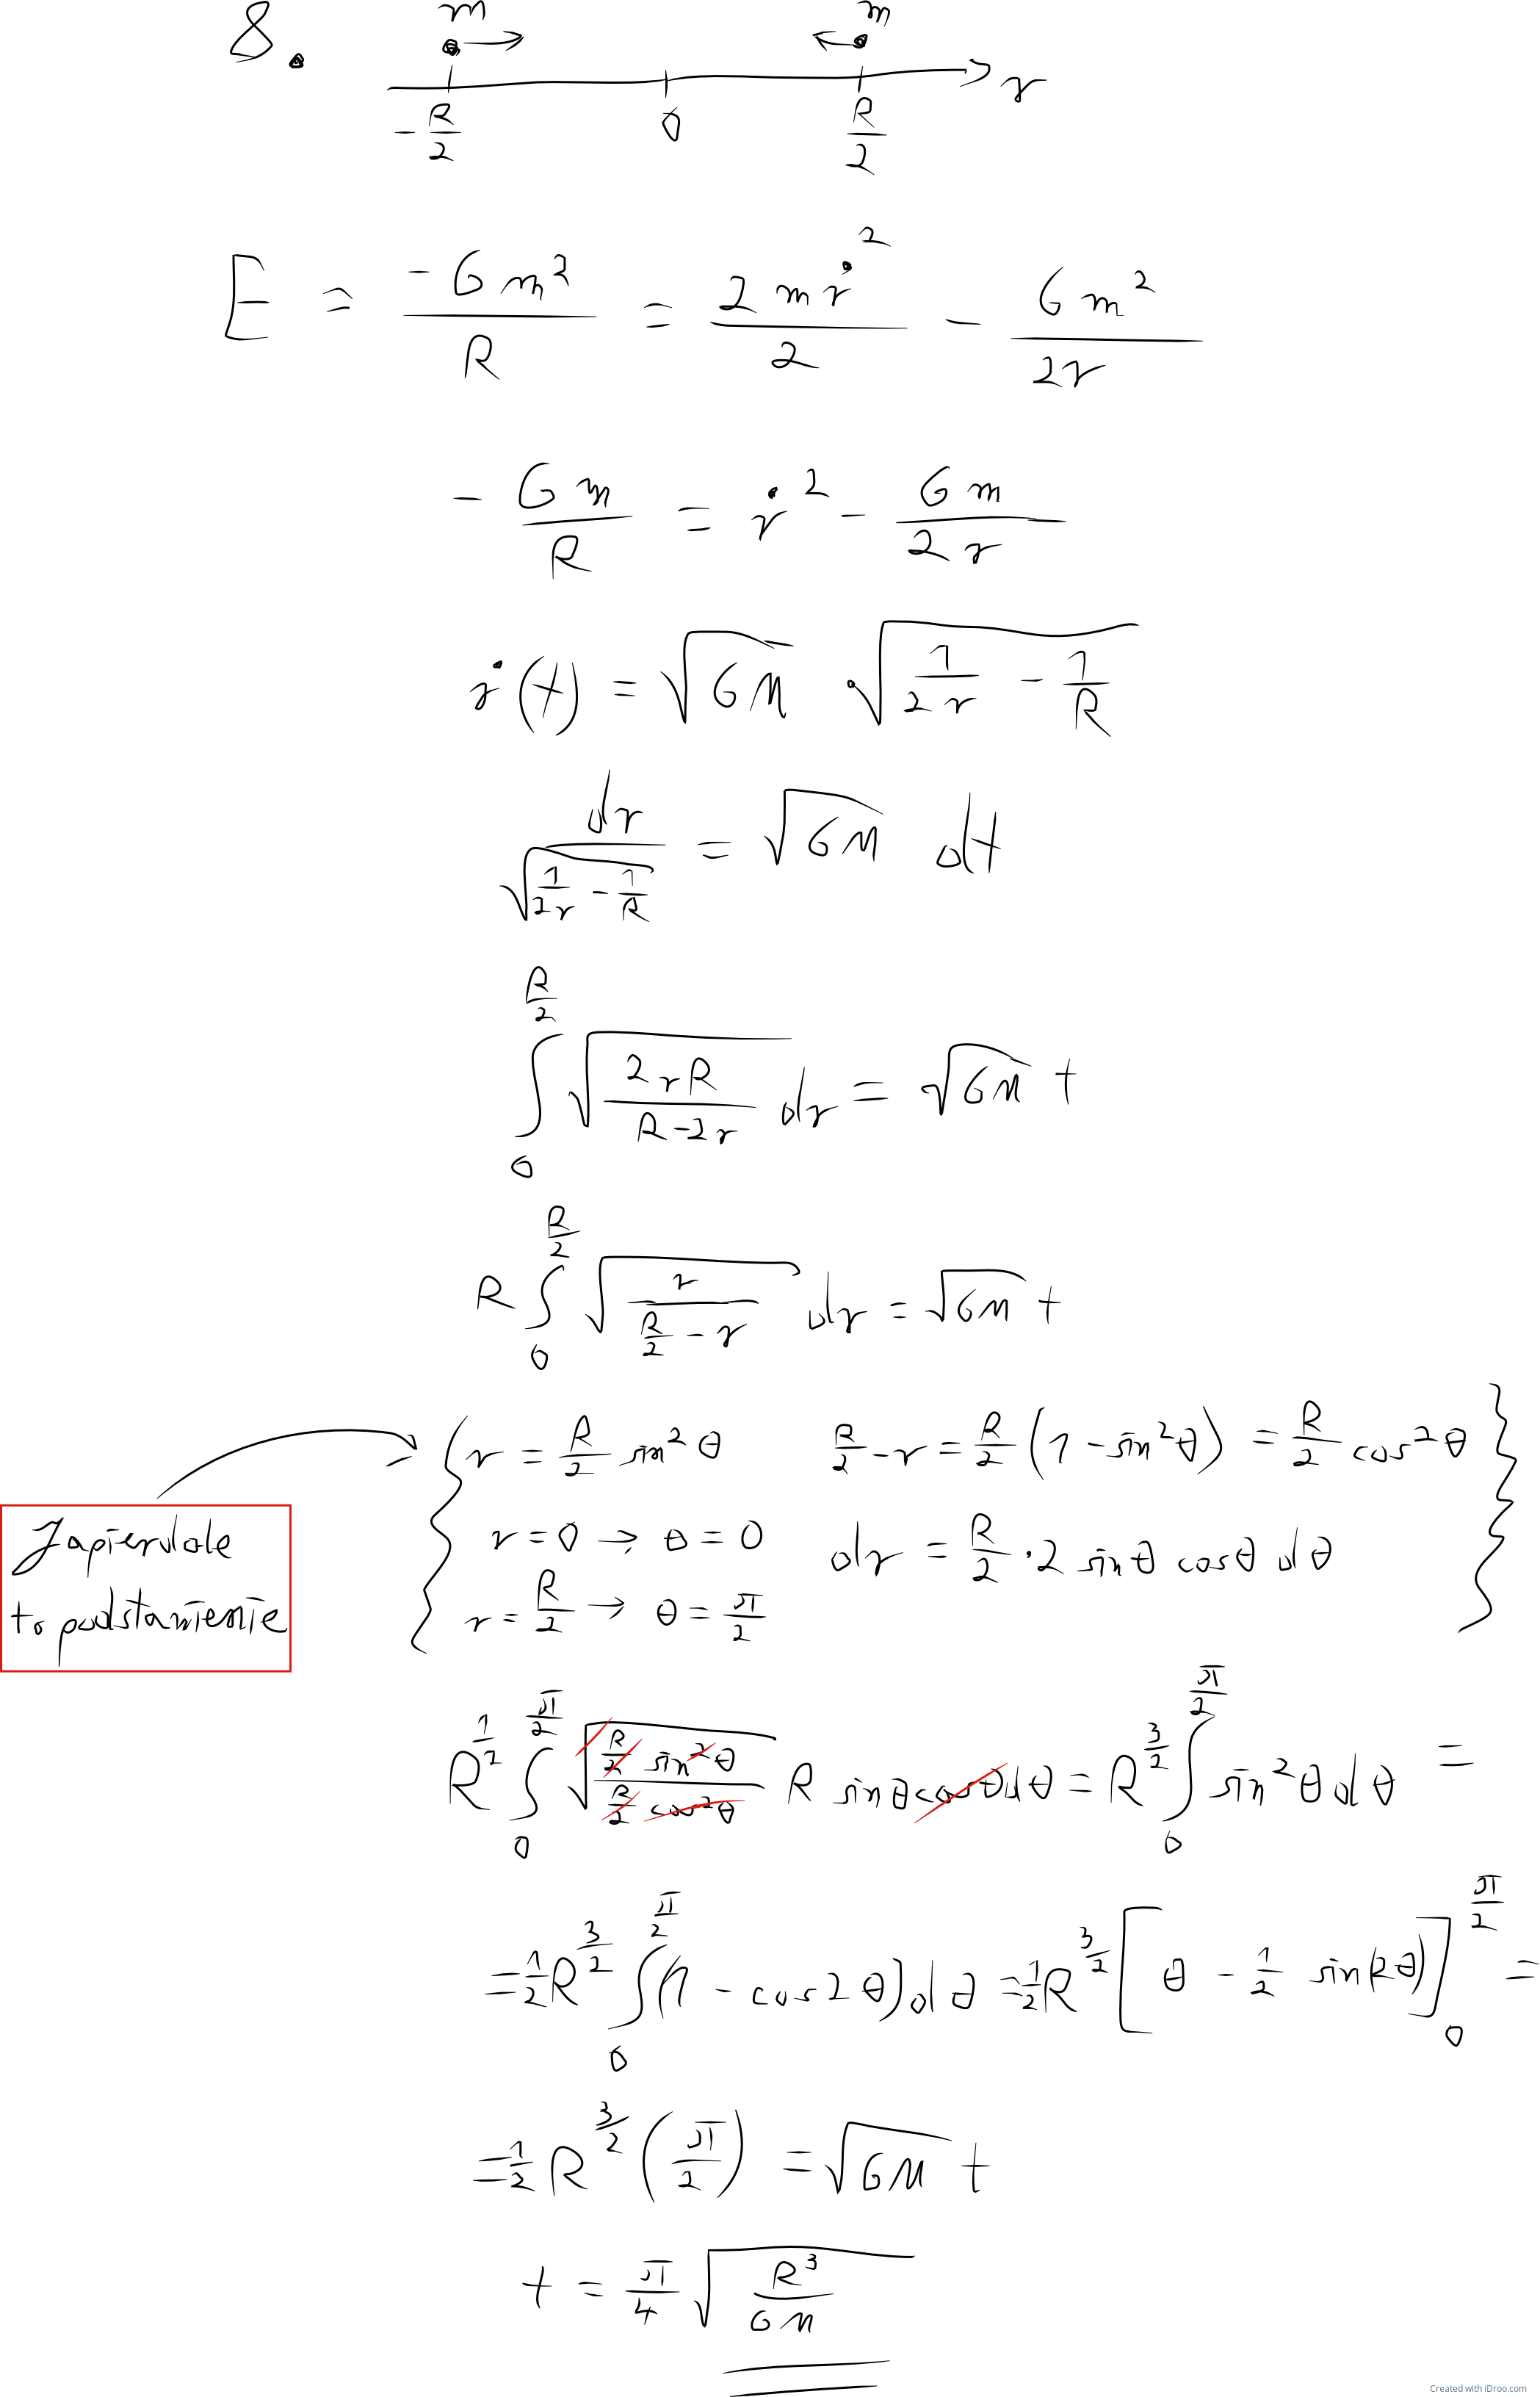 8.
m → ← m
-R/2 0 R/2 r
E = -Gm²/R = 2mṙ²/2 - Gm²/2r
-Gm/R = ṙ² - Gm/2r
ṙ(t) = √(GM) · √(1/2r - 1/R)
dr/√(1/2r - 1/R) = √(GM) dt
∫₀^(R/2) √(2rR/(R-2r)) dr = √(GM) t
R ∫₀^(R/2) √(r/(R/2 - r)) dr = √(GM) t
{ r = R/2 sin²θ R/2 - r = R/2 (1 - sin²θ) = R/2 cos²θ }
r = 0 → θ = 0 dr = R/2 · 2 sinθ cosθ dθ
r = R/2 → θ = π/2
Zapierdole
to podstawienie
R^(1/2) ∫₀^(π/2) √((R/2 sin²θ)/(R/2 cos²θ)) R sinθ cosθ dθ = R^(3/2) ∫₀^(π/2) sin²θ dθ =
= 1/2 R^(3/2) ∫₀^(π/2) (1 - cos2θ) dθ = 1/2 R^(3/2) [θ - 1/2 sin(2θ)]₀^(π/2) =
= 1/2 R^(3/2) (π/2) = √(GM) t
t = π/4 √(R³/GM)
Created with iDroo.com